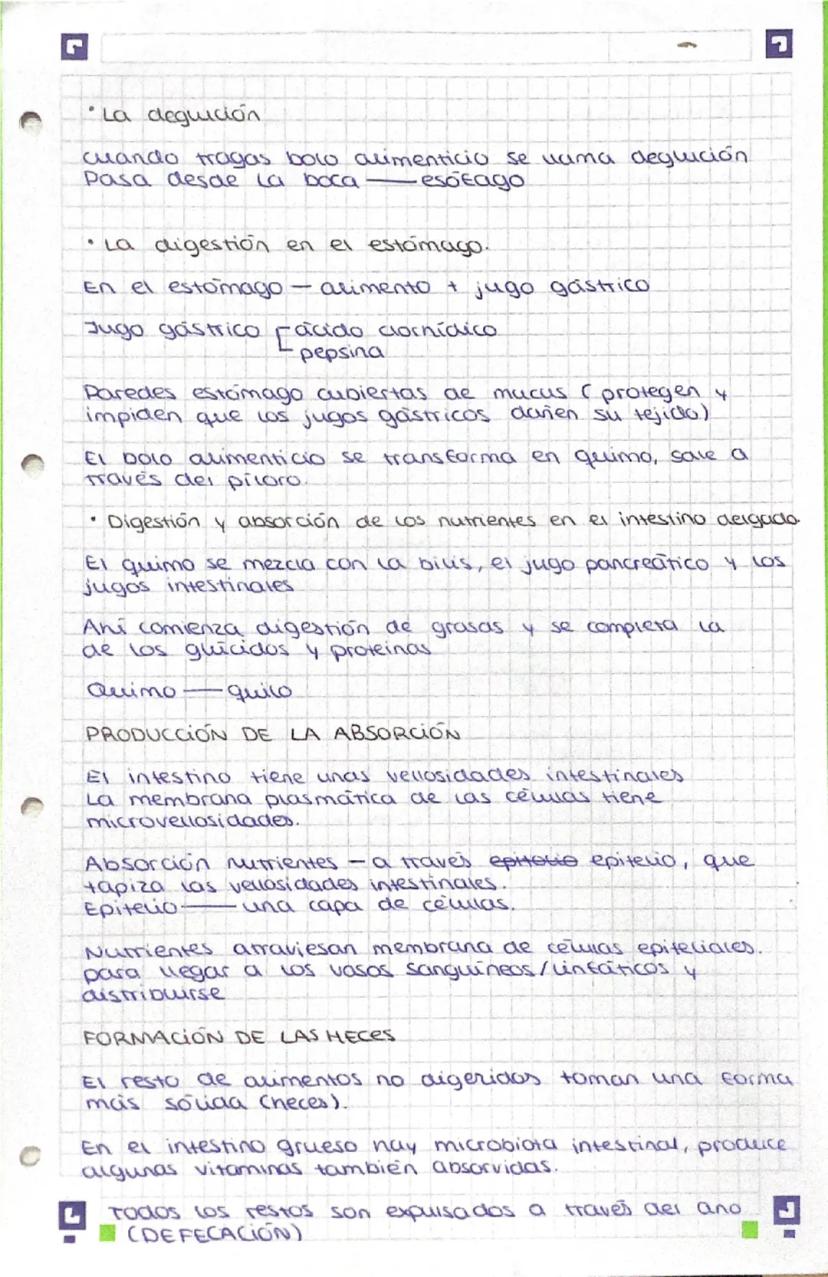 · La deglución
Cuando tragas bolo alimenticio se llama deglución
Pasa desde la boca — esófago
· La digestión en el estómago.
En el estómago — alimento + jugo gástrico
Jugo gástrico [ ácido clorhídico
pepsina
Paredes estómago cubiertas de mucus (protegen y
impiden que los jugos gástricos dañen su tejido)
El bolo alimenticio se transforma en quimo, sale a
través del píloro.
· Digestión y absorción de los nutrientes en el intestino delgado.
El quimo se mezcla con la bilis, el jugo pancreático y los
jugos intestinales
Ahí comienza digestión de grasas y se completa la
de los glúcidos y proteínas
Quimo — quilo
PRODUCCIÓN DE LA ABSORCIÓN
El intestino tiene unas vellosidades intestinales
La membrana plasmática de las células tiene
microvellosidades.
Absorción nutrientes — a través epitelio epitelio, que
tapiza las vellosidades intestinales.
Epitelio — una capa de células.
Nutrientes atraviesan membrana de células epiteliales.
para llegar a los vasos sanguíneos/linfáticos y
distribuirse
FORMACIÓN DE LAS HECES
El resto de alimentos no digeridos toman una forma
más sólida (heces).
En el intestino grueso hay microbiota intestinal, produce
algunas vitaminas también absorvidas.
Todos los restos son expulsados a través del ano
(DEFECACIÓN)